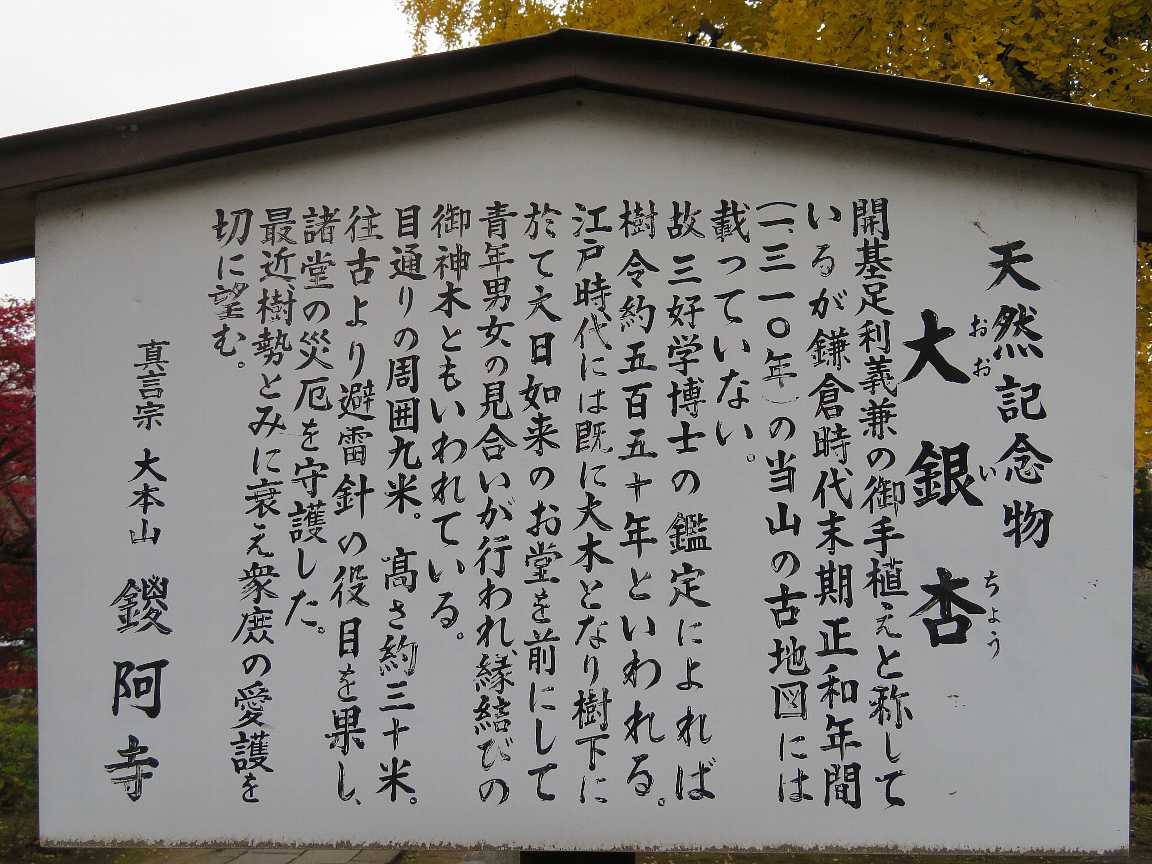 天然記念物
大銀杏
おお い ちょう
開基足利義兼の御手植えと称して
いるが鎌倉時代末期正和年間
(一、三一〇年)の当山の古地図には
載っていない。
故三好学博士の鑑定によれば
樹令約五百五十年といわれる。
江戸時代には既に大木となり樹下に
於て大日如来のお堂を前にして
青年男女の見合いが行われ、縁結びの
御神木ともいわれている。
目通りの周囲九米。高さ約三十米。
往古より避雷針の役目を果し、
諸堂の災厄を守護した。
最近、樹勢とみに衰え衆庶の愛護を
切に望む。
真言宗 大本山 鑁阿寺